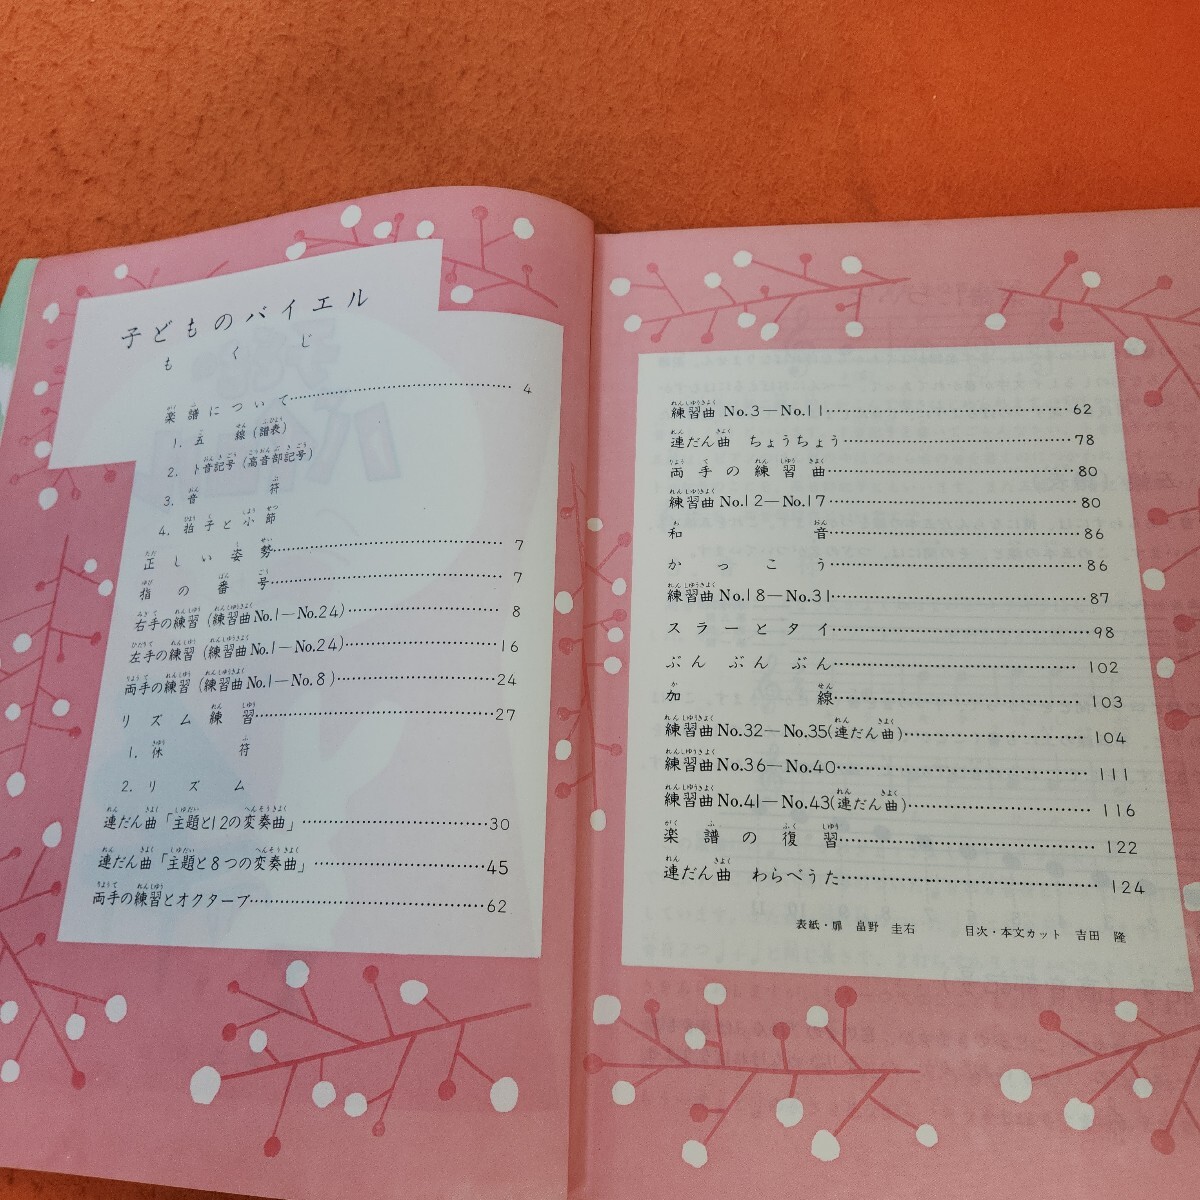 子どものバイエル
もくじ
楽譜について 4
1. 五線(譜表)
2. ト音記号(高音部記号)
3. 音符
4. 拍子と小節
正しい姿勢 7
指の番号 7
右手の練習(練習曲No.1—No.24) 8
左手の練習(練習曲No.1—No.24) 16
両手の練習(練習曲No.1—No.8) 24
リズム練習 27
1. 休符
2. リズム
連だん曲「主題と12の変奏曲」 30
連だん曲「主題と8つの変奏曲」 45
両手の練習とオクターブ 62
練習曲 No.3—No.11 62
連だん曲 ちょうちょう 78
両手の練習曲 80
練習曲No.12—No.17 80
和音 86
かっこう 86
練習曲No.18—No.31 87
スラーとタイ 98
ぶんぶんぶん 102
加線 103
練習曲No.32—No.35(連だん曲) 104
練習曲No.36—No.40 111
練習曲No.41—No.43(連だん曲) 116
楽譜の復習 122
連だん曲 わらべうた 124
表紙・扉 畠野 圭右 目次・本文カット 吉田 隆